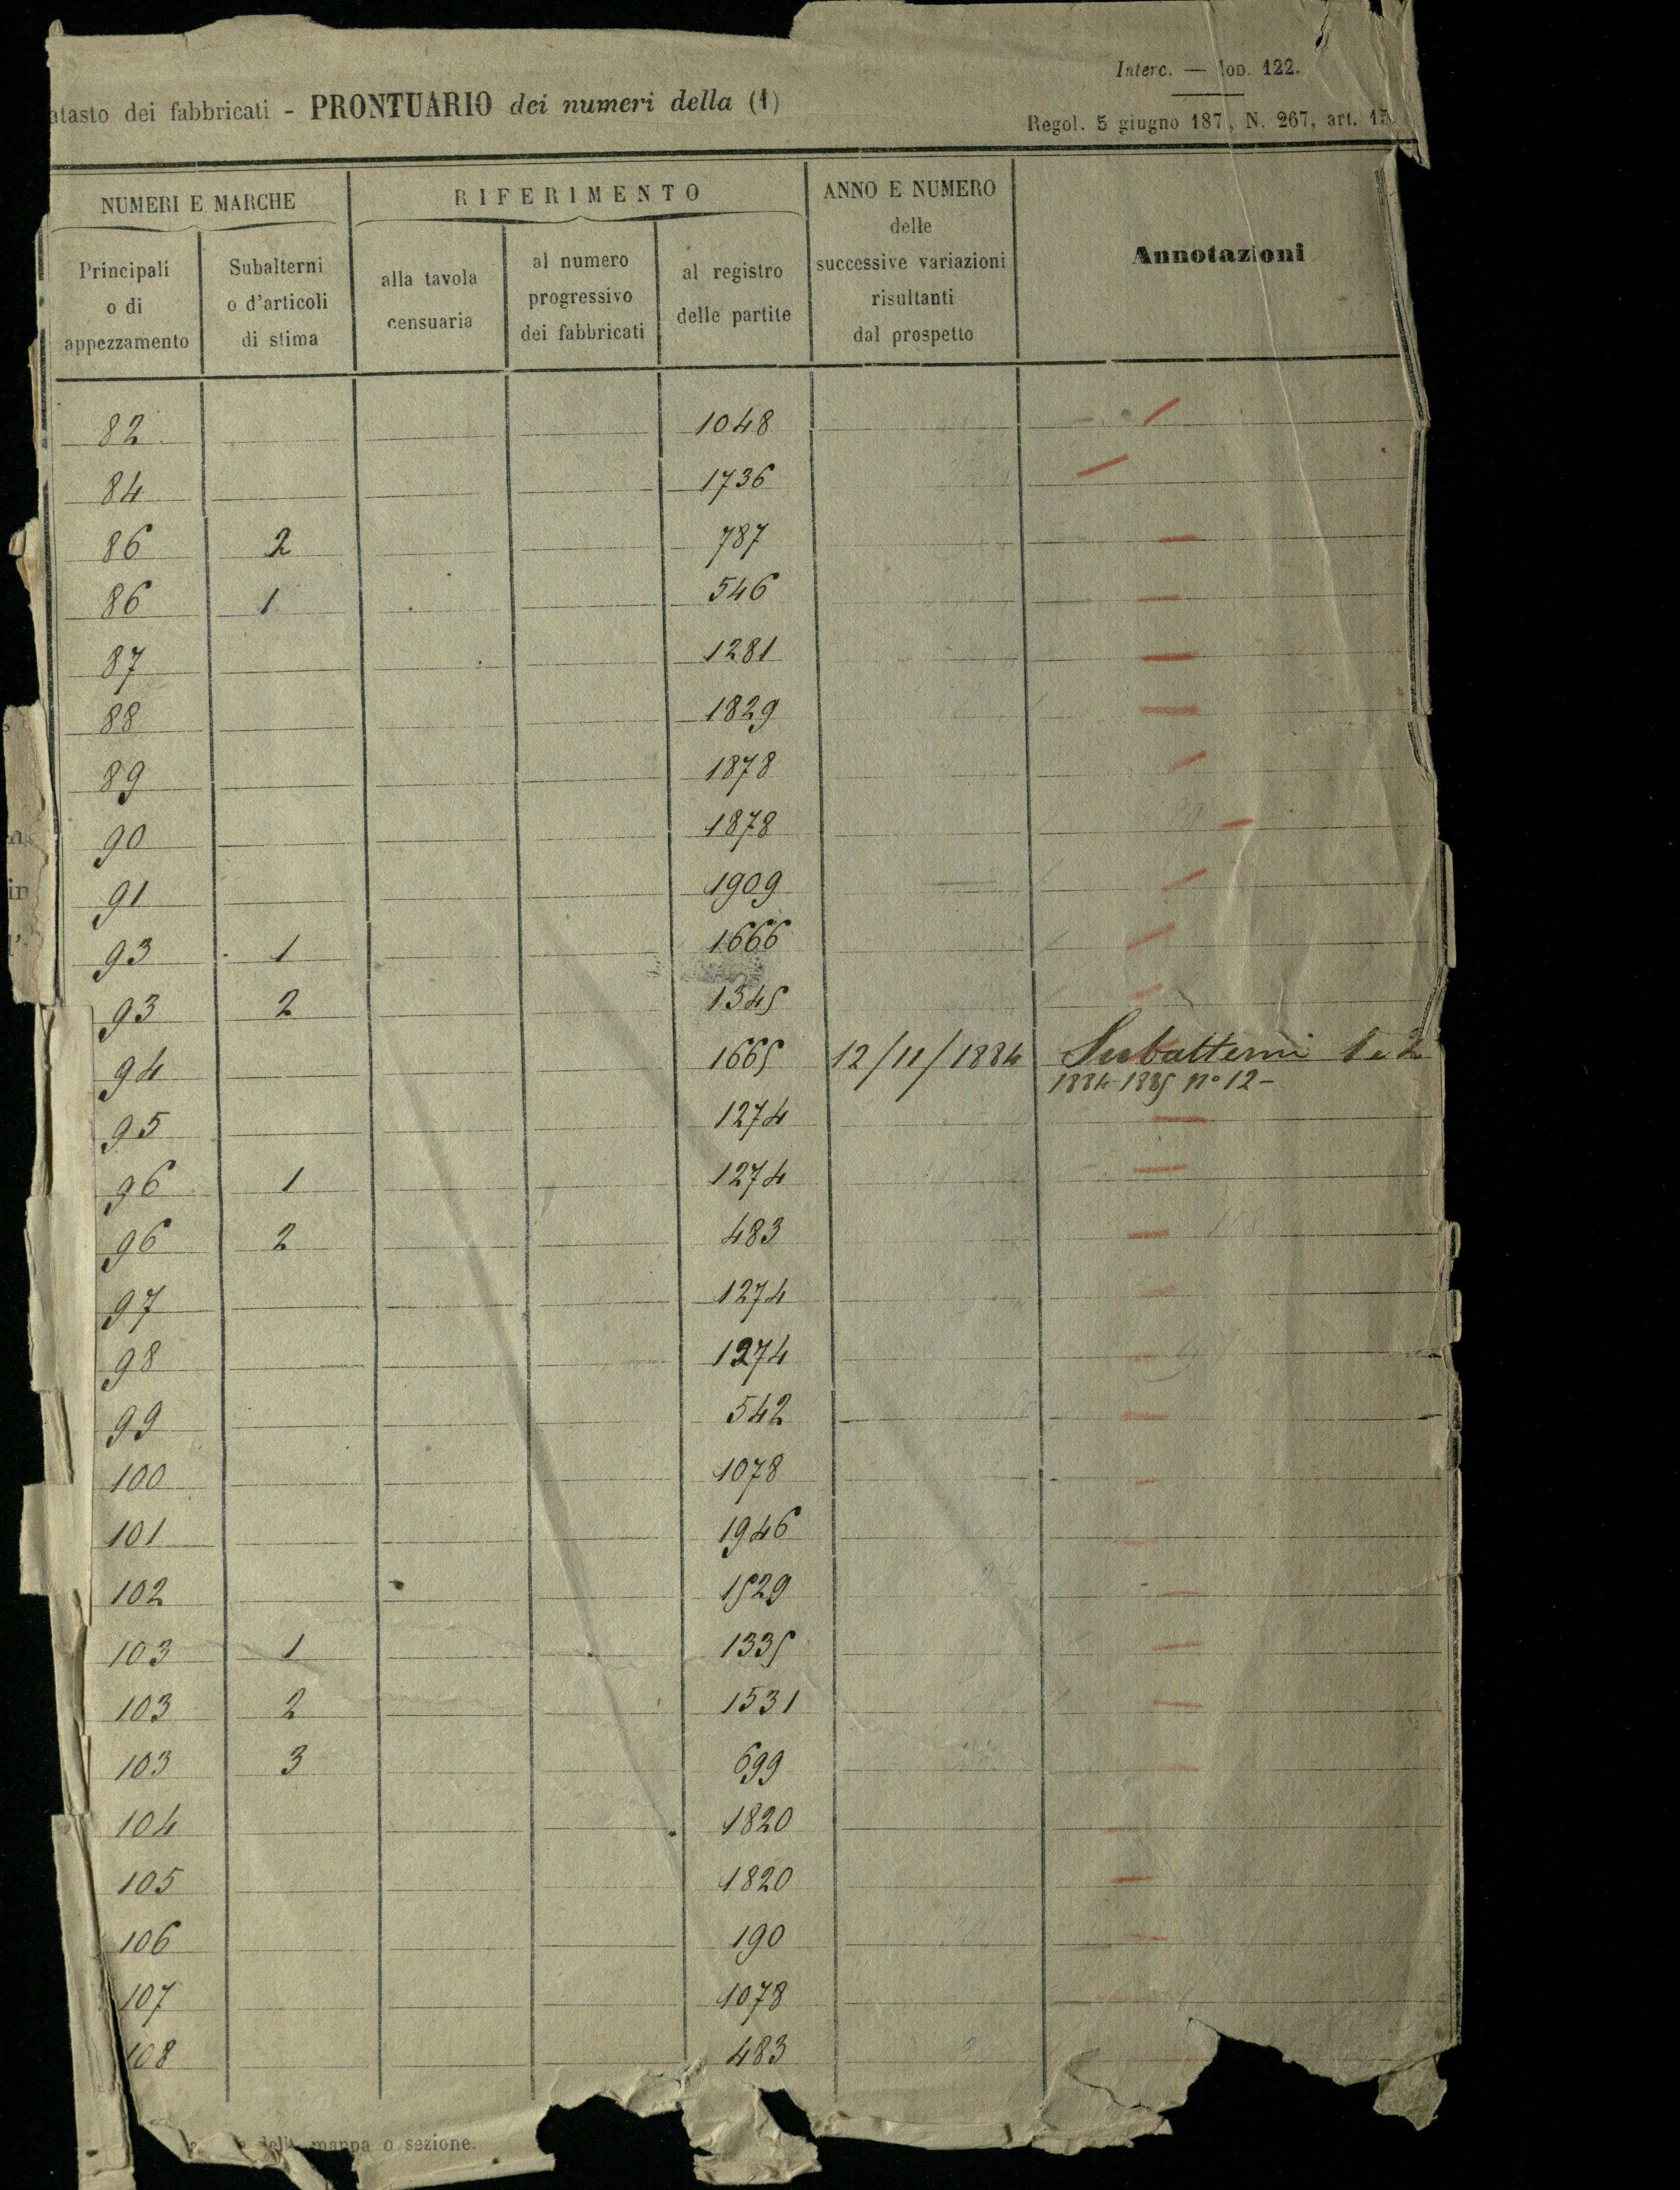 Interc. — Mod. 122.
atasto dei fabbricati - PRONTUARIO dei numeri della (1)
Regol. 5 giugno 187, N. 267, art. 15
NUMERI E MARCHE
RIFERIMENTO
ANNO E NUMERO
delle
successive variazioni
risultanti
dal prospetto
Annotazioni
Principali
o di
appezzamento
Subalterni
o d'articoli
di stima
alla tavola
censuaria
al numero
progressivo
dei fabbricati
al registro
delle partite
82 1048
84 1736
86 2 787
86 1 546
87 1281
88 1829
89 1878
90 1878
91 1909
93 1 1666
93 2 1345
94 1665 12/11/1884 Subalterni 1 e 2
1884-1885 n° 12-
95 1274
96 1 1274
96 2 483
97 1274
98 1274
99 542
100 1078
101 1946
102 1529
103 1 1335
103 2 1531
103 3 699
104 1820
105 1820
106 190
107 1078
108 483
mappa o sezione.